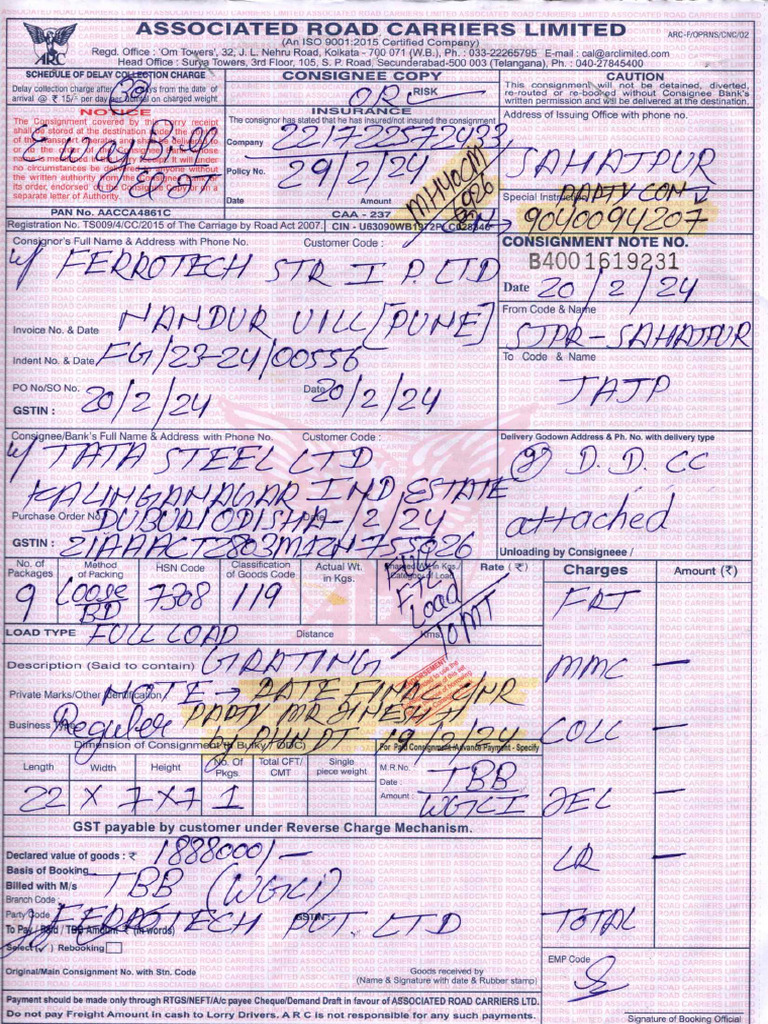 ASSOCIATED ROAD CARRIERS LIMITED
ARC-F/OPRNS/CNC/02
(An ISO 9001:2015 Certified Company)
Regd. Office : 'Om Towers', 32, J. L. Nehru Road, Kolkata - 700 071 (W.B.), Ph. : 033-22265795 E-mail : cal@arclimited.com
Head Office : Surya Towers, 3rd Floor, 105, S. P. Road, Secunderabad-500 003 (Telangana), Ph. : 040-27845400
ARC
SCHEDULE OF DELAY COLLECTION CHARGE
Delay collection charge after 30 days from the date of
arrival @ ₹ 15/- per day per on charged weight
NOTICE
The Consignment covered by
Eway Bill
without the written authority
its order, endorsed on the Consignee Copy or on a
separate letter of Authority.
PAN No. AACCA4861C
Registration No. TS009/4/CC/2015 of The Carriage by Road Act 2007.
CONSIGNEE COPY
ORC RISK
INSURANCE
The consignor has stated that he has insured/not insured the consignment
Company 221722572433
Policy No. 29/2/24
Date Amount
MH40CM
6926
CAA - 237
CAUTION
This consignment will not be detained, diverted,
re-routed or re-booked without Consignee Bank's
written permission and will be delivered at the destination.
Address of Issuing Office with phone no.
SAHAJPUR
Special Instruction PARTY CON
9040094207
CONSIGNMENT NOTE NO.
B400 1619231
Date 20/2/24
From Code & Name
SJPR-SAHAJPUR
To Code & Name
JAJP
Consignor's Full Name & Address with Phone No. Customer Code :
FERROTECH STR I P. LTD
NANDUR VILL [PUNE]
Invoice No. & Date
Indent No. & Date FG/23-24/00556
PO No/SO No. Date 20/2/24
20/2/24
GSTIN :
Consignee/Bank's Full Name & Address with Phone No. Customer Code :
TATA STEEL LTD
KALINGANAGAR IND ESTATE
Purchase Order No. DUBURI ODISHA
GSTIN : 755026
Delivery Godown Address & Ph. No. with delivery type
D. D. CC
attached
Unloading by Consignee /
No. of Packages Method of Packing HSN Code Classification of Goods Code Actual Wt. in Kgs. Rate (₹)
9 Loose/BD 7308 119 FTL Load
LOAD TYPE FULL LOAD Distance Kms.
Description (Said to contain) GRATING
Private Marks/Other Identification NOTE → RATE FINAL
Business Type Reguler PARTY MR
19/2/24
Dimension of Consignment (If Bulky / ODC) For Paid Consignment /Advance Payment - Specify
Length Width Height No. Of Pkgs. Total CFT/CMT Single piece weight
22 x 7 x 7 1
M.R.No.
Date :
Amount :
TBB
GST payable by customer under Reverse Charge Mechanism.
Declared value of goods : ₹ 1888000/-
Basis of Booking
Billed with M/s TBB
Branch Code :
Party Code FERROTECH PVT. LTD
GSTIN :
To Pay / Paid / TBB Amount ₹ (in words)
Select (✓) Rebooking
Original/Main Consignment No. with Stn. Code
Goods received by
(Name & Signature with date & Rubber stamp)
Charges Amount (₹)
FRT
MMC —
COLL —
DEL —
LR —
TOTAL
EMP Code
Signature of Booking Official
Payment should be made only through RTGS/NEFT/A/c payee Cheque/Demand Draft in favour of ASSOCIATED ROAD CARRIERS LTD.
Do not pay Freight Amount in cash to Lorry Drivers. A R C is not responsible for any such payments.